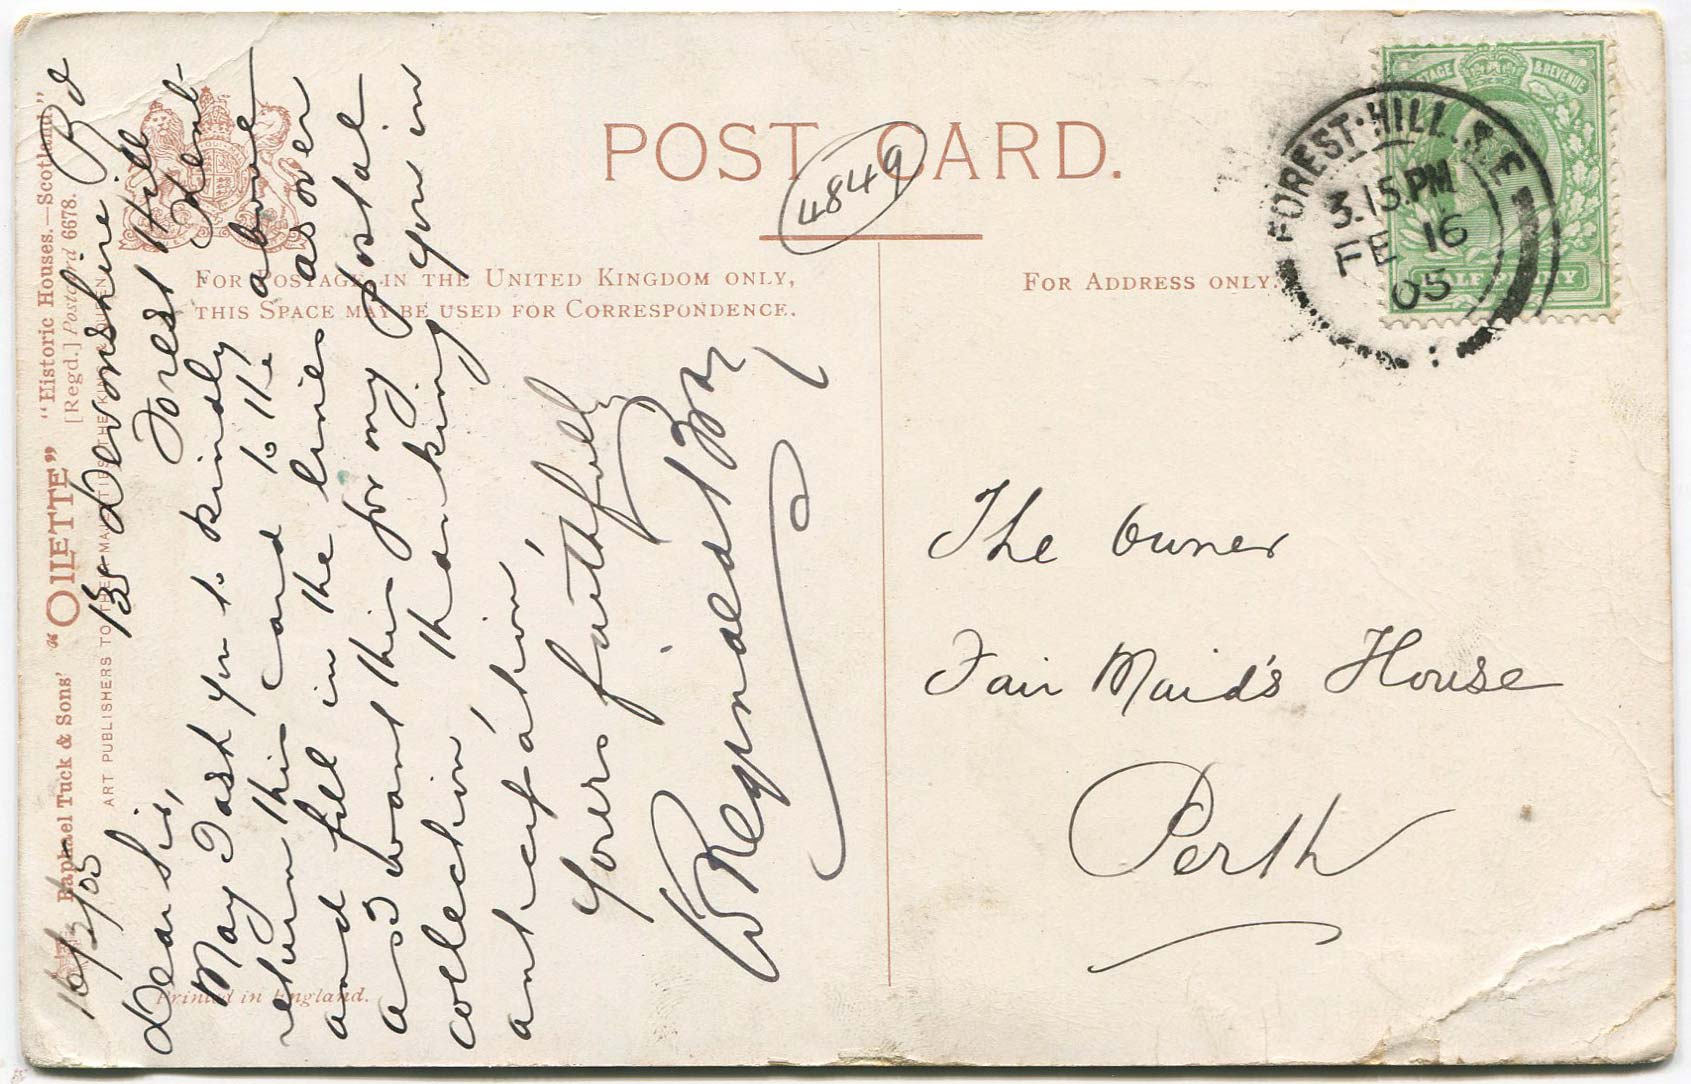 POST CARD.
4849
FOR POSTAGE IN THE UNITED KINGDOM ONLY,
THIS SPACE MAY BE USED FOR CORRESPONDENCE.
FOR ADDRESS ONLY.
POSTAGE & REVENUE
HALF PENNY
FOREST·HILL.S.E
3.15.PM
FE 16
05
Raphael Tuck & Sons' "OILETTE" "Historic Houses.—Scotland"
[Regd.] Postcard 6678.
ART PUBLISHERS TO THEIR MAJESTIES THE KING & QUEEN
Printed in England.
16/2/05
Devonshire Rd
Forest Hill
Kent
Dear Sir,
May I ask you to kindly
return this card to the above
and fill in the lines as over
as I want this for my postal
collection, thanking you in
anticipation,
Yours faithfully
Reginald
The Owner
Fair Maid's House
Perth